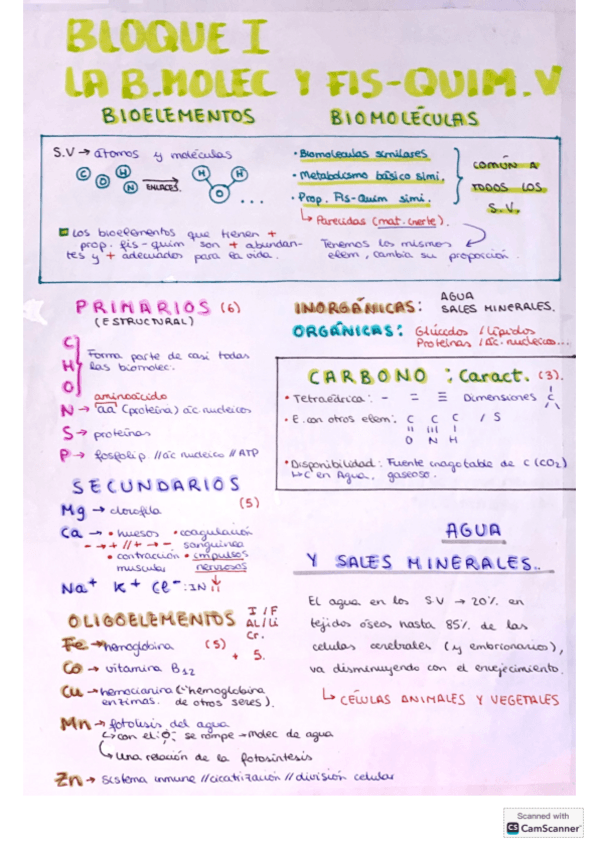 BLOQUE I
LA B.MOLEC Y FIS-QUIM.V
BIOELEMENTOS
BIOMOLÉCULAS
S.V → átomos y moléculas
C O H N ENLACES. H H O ...
Los bioelementos que tienen +
prop. fis-quim son + abundan-
tes y + adecuados para la vida.
• Biomoleculas similares
• Metabolismo básico simi.
• Prop. Fis-Quim simi.
↳ Parecidas (mat. inerte).
COMÚN A
TODOS LOS
S.V.
Tenemos los mismos
elem, cambia su proporción.
PRIMARIOS (6)
(ESTRUCTURAL)
C
H
O
Forma parte de casi todas
las biomolec.
aminoácido
N → aa (proteína) ác nucleicos
S → proteínas
P → fosfolip. // ác nucleico // ATP
SECUNDARIOS
(5)
Mg → clorofila
Ca → • huesos • coagulación
- → + // + → - sanguínea
• contracción • impulsos
muscular nerviosos
Na+ K+ Cl- : IN
OLIGOELEMENTOS
I / F
AL/Li
Cr.
(5) + 5.
Fe → hemoglobina
Co → vitamina B12
Cu → hemocianina (hemoglobina
enzimas. de otros seres).
Mn → fotolisis del agua
↳ con el se rompe → molec de agua
↳ una relación de la fotosíntesis
Zn → sistema inmune // cicatrización // división celular
INORGÁNICAS: AGUA
SALES MINERALES.
ORGÁNICAS: Glúcidos / Lípidos
Proteínas / Ác. nucleicos...
CARBONO : Caract. (3).
• Tetraédrica: - = ≡ Dimensiones C
• E. con otros elem: C C C / S
O N H
• Disponibilidad: Fuente inagotable de C (CO2)
↳ C en Agua, gaseoso.
AGUA
Y SALES MINERALES..
El agua en los S.V → 20% en
tejidos óseos hasta 85% de las
celulas cerebrales (y embrionarios),
va disminuyendo con el envejecimiento.
↳ CÉLULAS ANIMALES Y VEGETALES
Scanned with
CS CamScanner